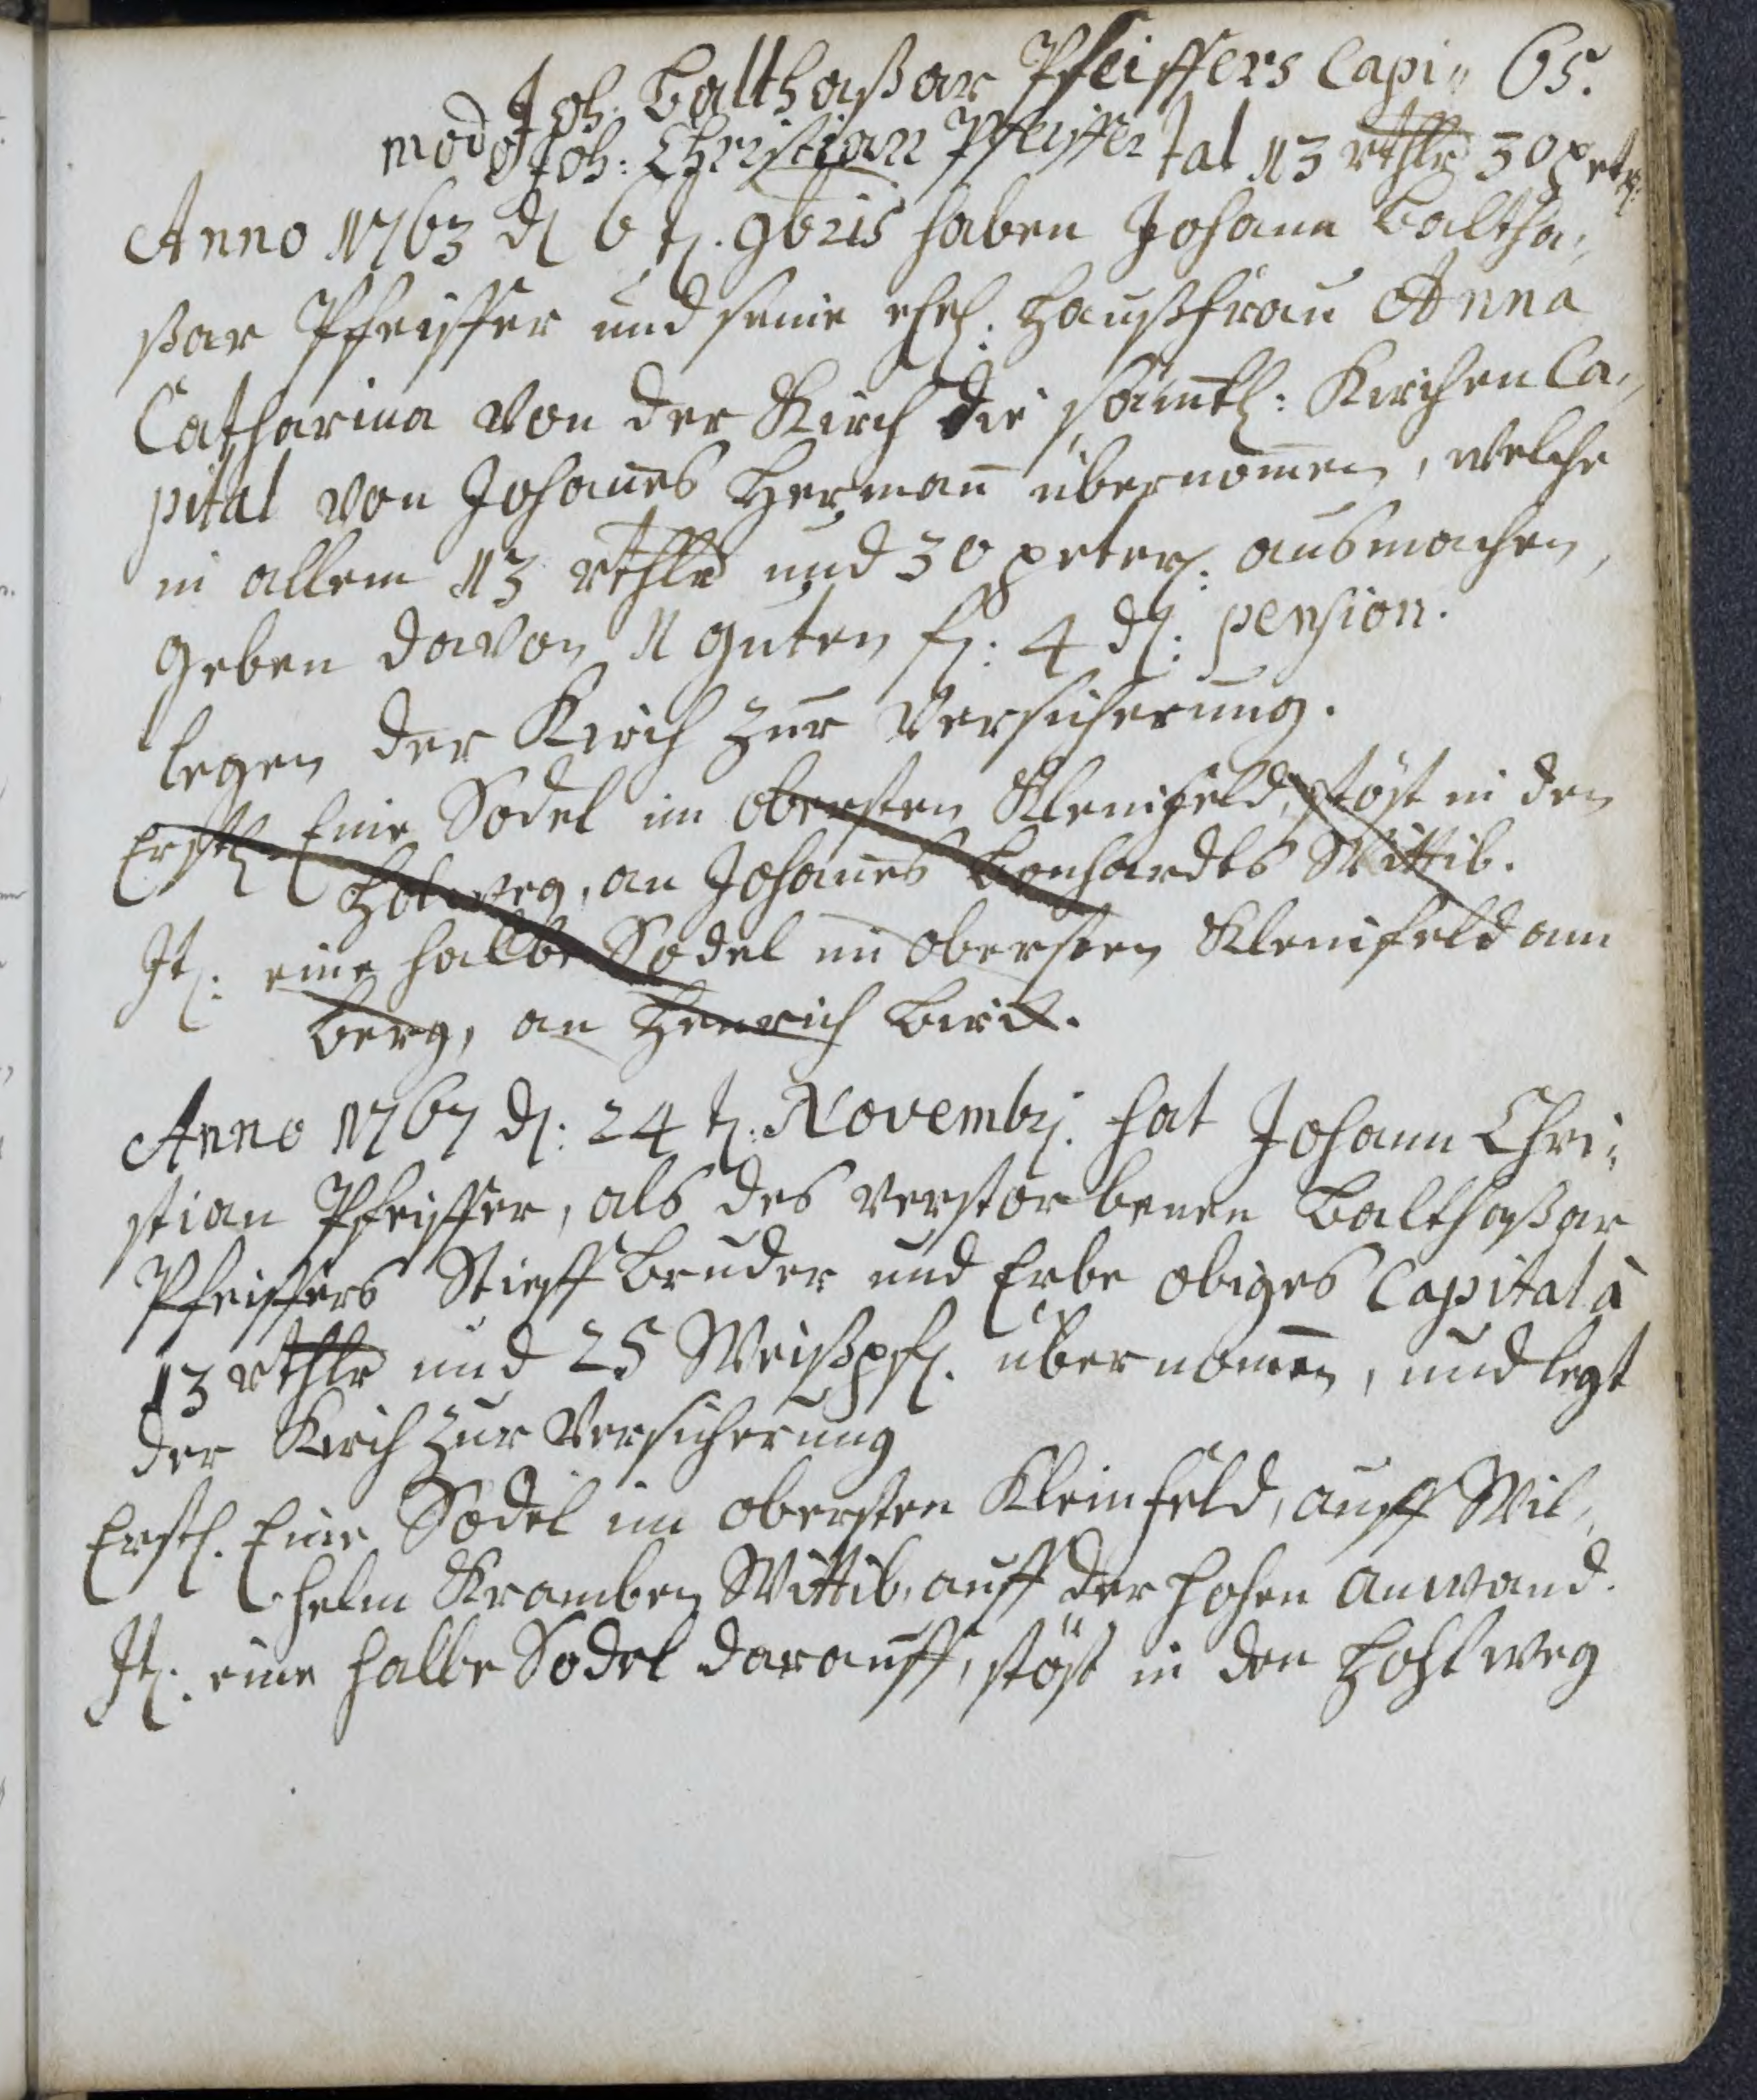 Joh: Balthaßar Pfeiffers Capi„ 65.
modo Joh: Christian Pfeiffer tal 13 rthlr 30 peter:
Anno 1763 d 6 t. 9bris haben Johann Baltha„
ßar Pfeiffer und seine ehel. Haußfrau Anna
Catharina von der Kirch die sämtl: Kirchen Ca„
pital von Johañes Hermañ übernom̄en, welche
in allem 13 rthlr und 30 peterm: ausmachen,
geben davon 11 guten f: 4 d: pension.
legen der Kirch zur Versicherung.
Erstl Eine Sodel im obersten Kleinfeld, stöst in den
Holweg, an Johañes Lenhardts Wittib.
It: eine halbe Sodel im obersten Kleinfeld am
berg, an Henrich Birck.
Anno 1767 d: 24 t: Novembr: hat Johann Chri„
stian Pfeiffer, als des verstorbenen Balthaßar
Pfeiffers Stieff Bruder und Erbe obiges Capital à
13 rthlr und 25 Weißpf. übernom̄en, und legt
der Kirch zur Versicherung
Erstl. Eine Sodel im obersten Kleinfeld, auff Wil„
helm Kramben Wittib, auff der hohen anwand.
It: eine halbe Sodel darauff, stöst in den Hohlweg